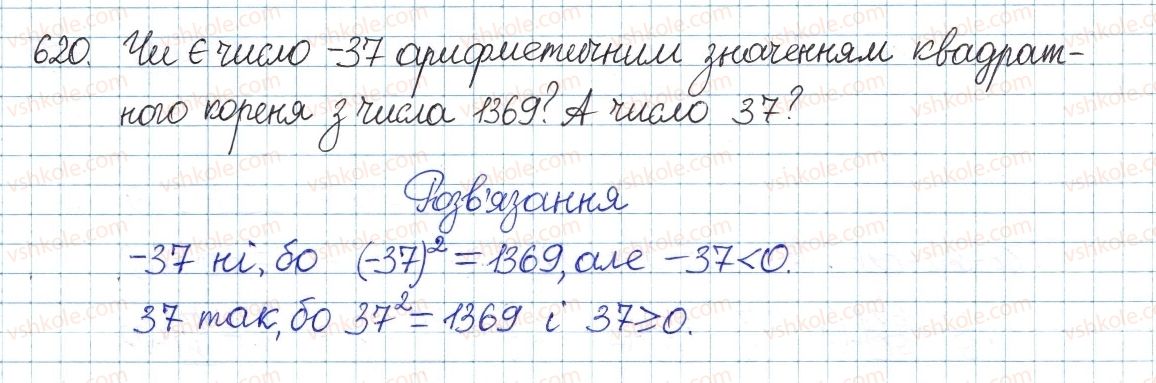 620. Чи є число -37 арифметичним значенням квадрат-
ного кореня з числа 1369? А число 37?
Розв'язання
-37 ні, бо (-37)² = 1369, але -37<0.
37 так, бо 37² = 1369 і 37≥0.